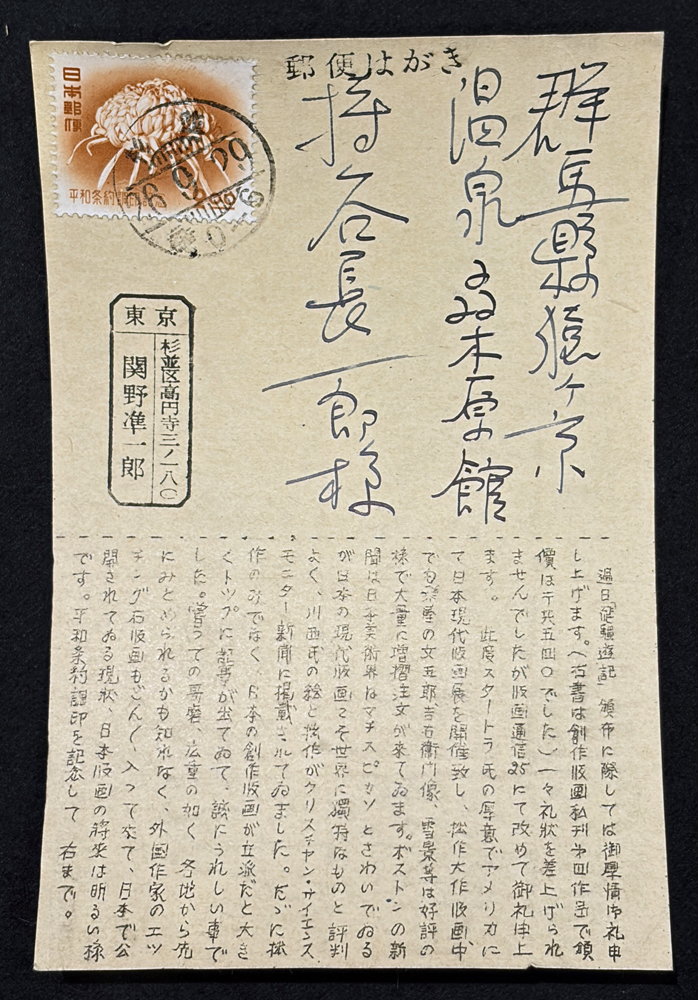 郵便はがき
日本郵便
平和条約調印
26.9.29
群馬縣猿ヶ京
温泉 木原館
持谷長一郎様
東京
杉並区高円寺三ノ一八〇
関野凖一郎
過日「飛騨遊記」頒布に際しては御厚情御礼申
し上げます。(右書は創作版画私刊第四作品で頒
價は干共五四〇でした)一々礼状を差上げられ
ませんでしたが版画通信25にて改めて御礼申上
ます。 此度スタートラ氏の厚意でアメリカに
て日本現代版画展を開催致し、拙作大作版画中、
でも の文五郎、吉右衛門像、雪景等は好評の
様で大量に増摺注文が来てゐます。ボストンの新
聞は日本美術界はマチスピカソとさわいでゐる
が日本の現代版画こそ世界に獨特なものと評判
よく、川西氏の絵と拙作がクリスチャン・サイエンス
モニター新聞に掲載されてゐました。たゞに拙
作のみでなく、日本の創作版画が立派だと大き
くトップに記事が出てゐて、誠にうれしい事で
した。嘗つての哥麿、広重の如く 各地から先
にみとめられるかも知れなく、外国作家のエッ
チング石版画もどんどん入って来て、日本で公
開されてゐる現状、日本版画の将来は明るい様
です。平和条約調印を記念して 右まで。